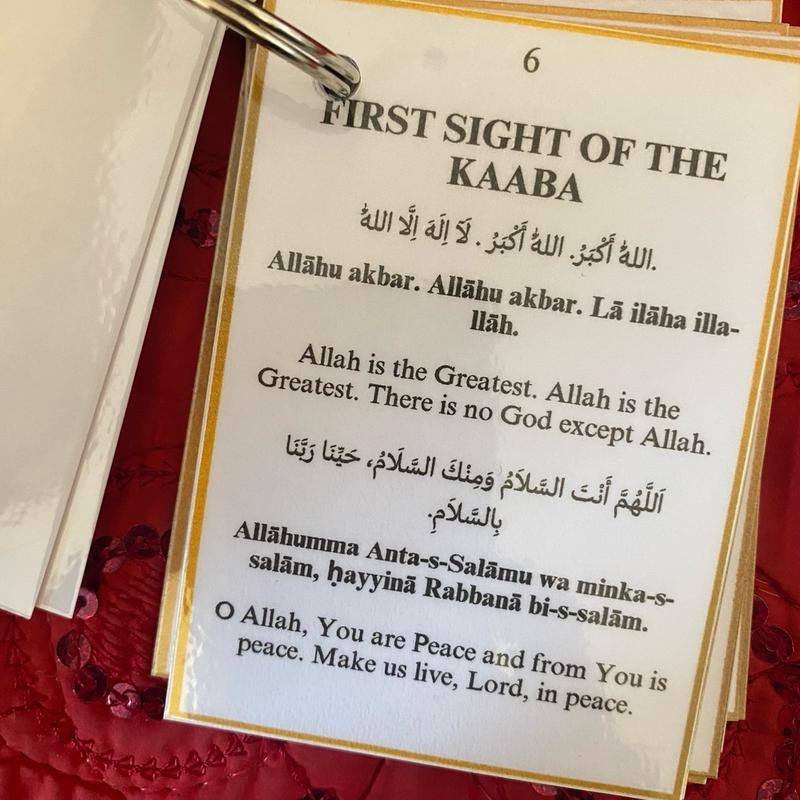 6
FIRST SIGHT OF THE
KAABA
اللهُ أَكْبَرُ. اللهُ أَكْبَرُ . لَآ اِلَهَ اِلَّا اللهُ.
Allāhu akbar. Allāhu akbar. Lā ilāha illa-
llāh.
Allah is the Greatest. Allah is the
Greatest. There is no God except Allah.
اَللَّهُمَّ أَنْتَ السَّلاَمُ وَمِنْكَ السَّلَامُ، حَيِّنَا رَبَّنَا
بِالسَّلاَمِ.
Allāhumma Anta-s-Salāmu wa minka-s-
salām, ḥayyinā Rabbanā bi-s-salām.
O Allah, You are Peace and from You is
peace. Make us live, Lord, in peace.